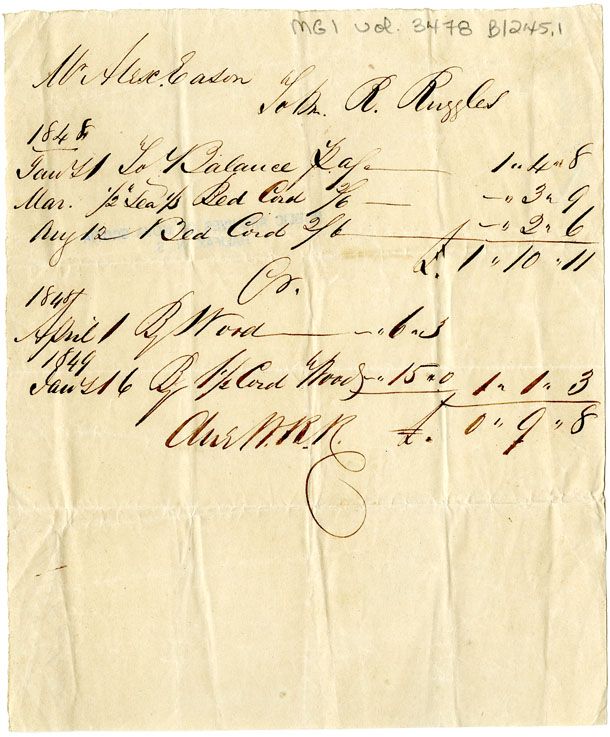 MG1 vol. 3478 B1245.1
Mr Alex. Eason
To Dr. R. Ruggles
1848
Jany 1 To Balance p. a/c — 1 " 4 " 8
Mar. 1/2 " Tea 1/3 Bed Cord 2/6 — - " 3 " 9
Aug 12 Bed Cord 2/6 - " 2 " 6
£. 1 " 10 " 11
Cr.
1848
April 1 By Wood — " 6 " 3
1849
Jany 16 By Cord Wood " 15 " 0 1 " 1 " 3
W. R. R. £. 0 " 9 " 8